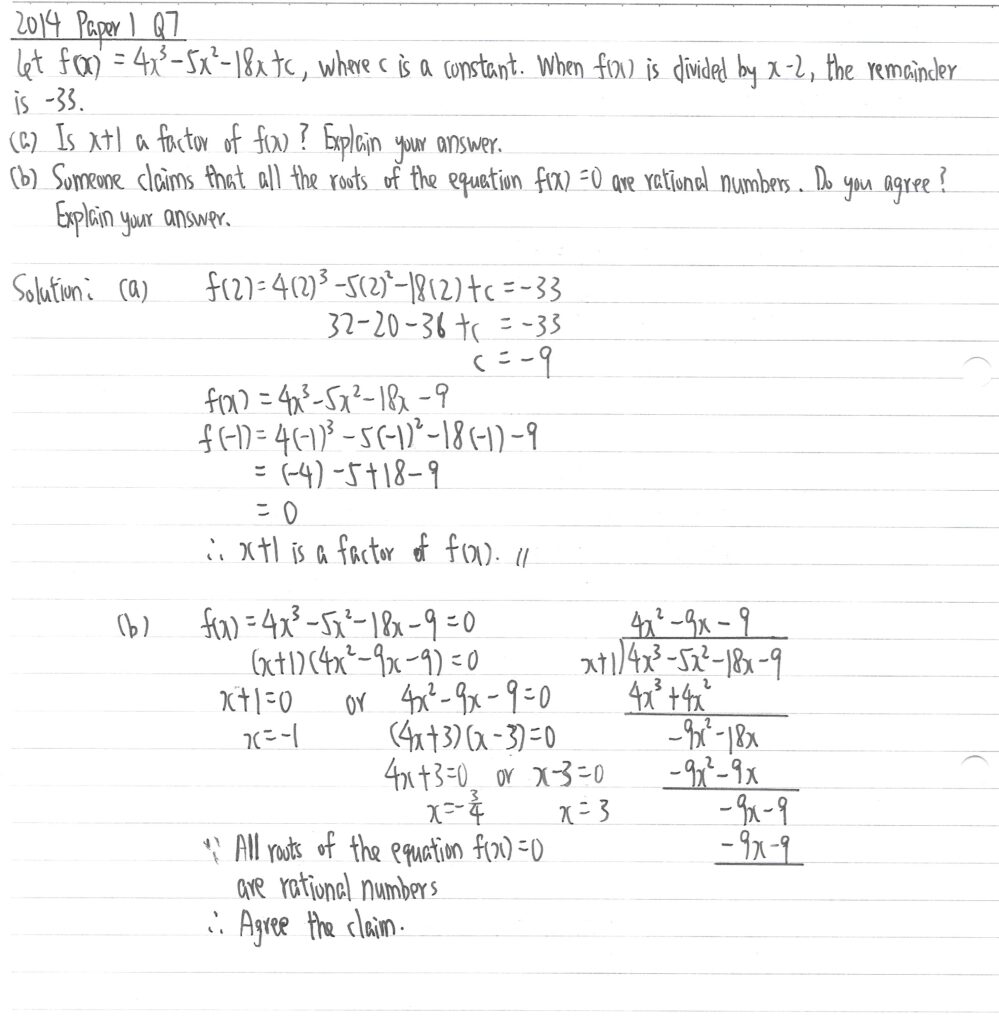 2014 Paper 1 Q7
Let f(x) = 4x³-5x²-18x+c, where c is a constant. When f(x) is divided by x-2, the remainder
is -33.
(a) Is x+1 a factor of f(x)? Explain your answer.
(b) Someone claims that all the roots of the equation f(x)=0 are rational numbers. Do you agree?
Explain your answer.
Solution: (a) f(2)=4(2)³-5(2)²-18(2)+c=-33
32-20-36+c = -33
c = -9
f(x) = 4x³-5x²-18x-9
f(-1) = 4(-1)³-5(-1)²-18(-1)-9
= (-4)-5+18-9
= 0
∴ x+1 is a factor of f(x). //
(b) f(x)=4x³-5x²-18x-9=0 4x²-9x-9
(x+1)(4x²-9x-9)=0 x+1)4x³-5x²-18x-9
x+1=0 or 4x²-9x-9=0 4x³+4x²
x=-1 (4x+3)(x-3)=0 -9x²-18x
4x+3=0 or x-3=0 -9x²-9x
x=-3/4 x=3 -9x-9
∵ All roots of the equation f(x)=0 -9x-9
are rational numbers
∴ Agree the claim.